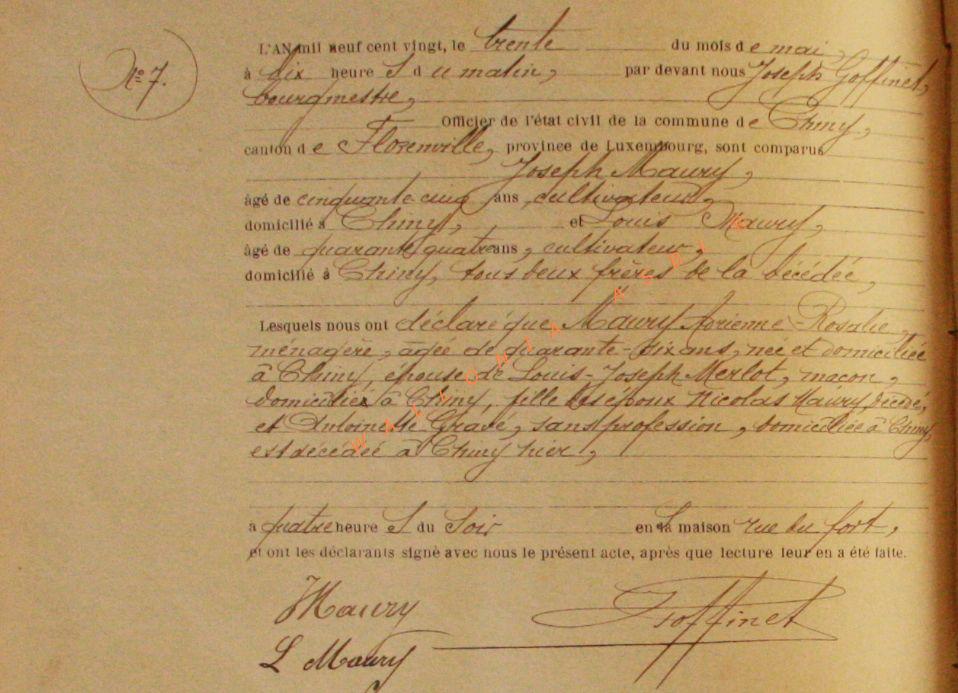 N° 7.
L'AN mil neuf cent vingt, le trente du mois de mai,
à dix heures du matin, par devant nous Joseph Goffinet,
bourgmestre,
Officier de l'état civil de la commune de Chiny,
canton de Florenville, province de Luxembourg, sont comparus
Joseph Maury,
âgé de cinquante-cinq ans, cultivateur,
domicilié à Chiny, et Louis Maury,
âgé de quarante quatre ans, cultivateur,
domicilié à Chiny, tous deux frères de la décédée,
Lesquels nous ont déclaré que Maury Adrienne-Rosalie,
ménagère, âgée de quarante-six ans, née et domiciliée
à Chiny, épouse de Louis-Joseph Merlot, maçon,
domicilié à Chiny, fille des époux Nicolas Maury, décédé,
et Antoinette Gravé, sans profession, domiciliée à Chiny,
est décédée à Chiny hier,
à quatre heures du soir en sa maison rue du fort,
et ont les déclarants signé avec nous le présent acte, après que lecture leur en a été faite.
J Maury
J Goffinet
L Maury